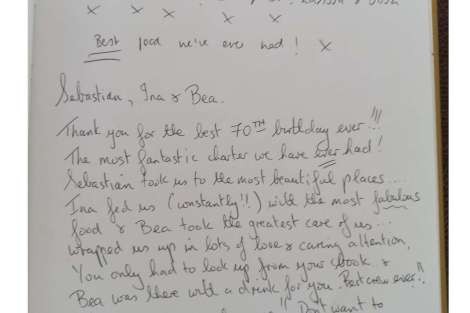 x x x x x
Best food we've ever had! x
Sebastian, Ina & Bea.
Thank you for the best 70TH birthday ever!!!
The most fantastic charter we have ever had!
Sebastian took us to the most beautiful places...
Ina fed us (constantly!!) with the most fabulous
food & Bea took the greatest care of us...
wrapped us up in lots of love & caring attention.
You only had to look up from your book &
Bea was there with a drink for you. Best crew ever!!
!! Don't want to